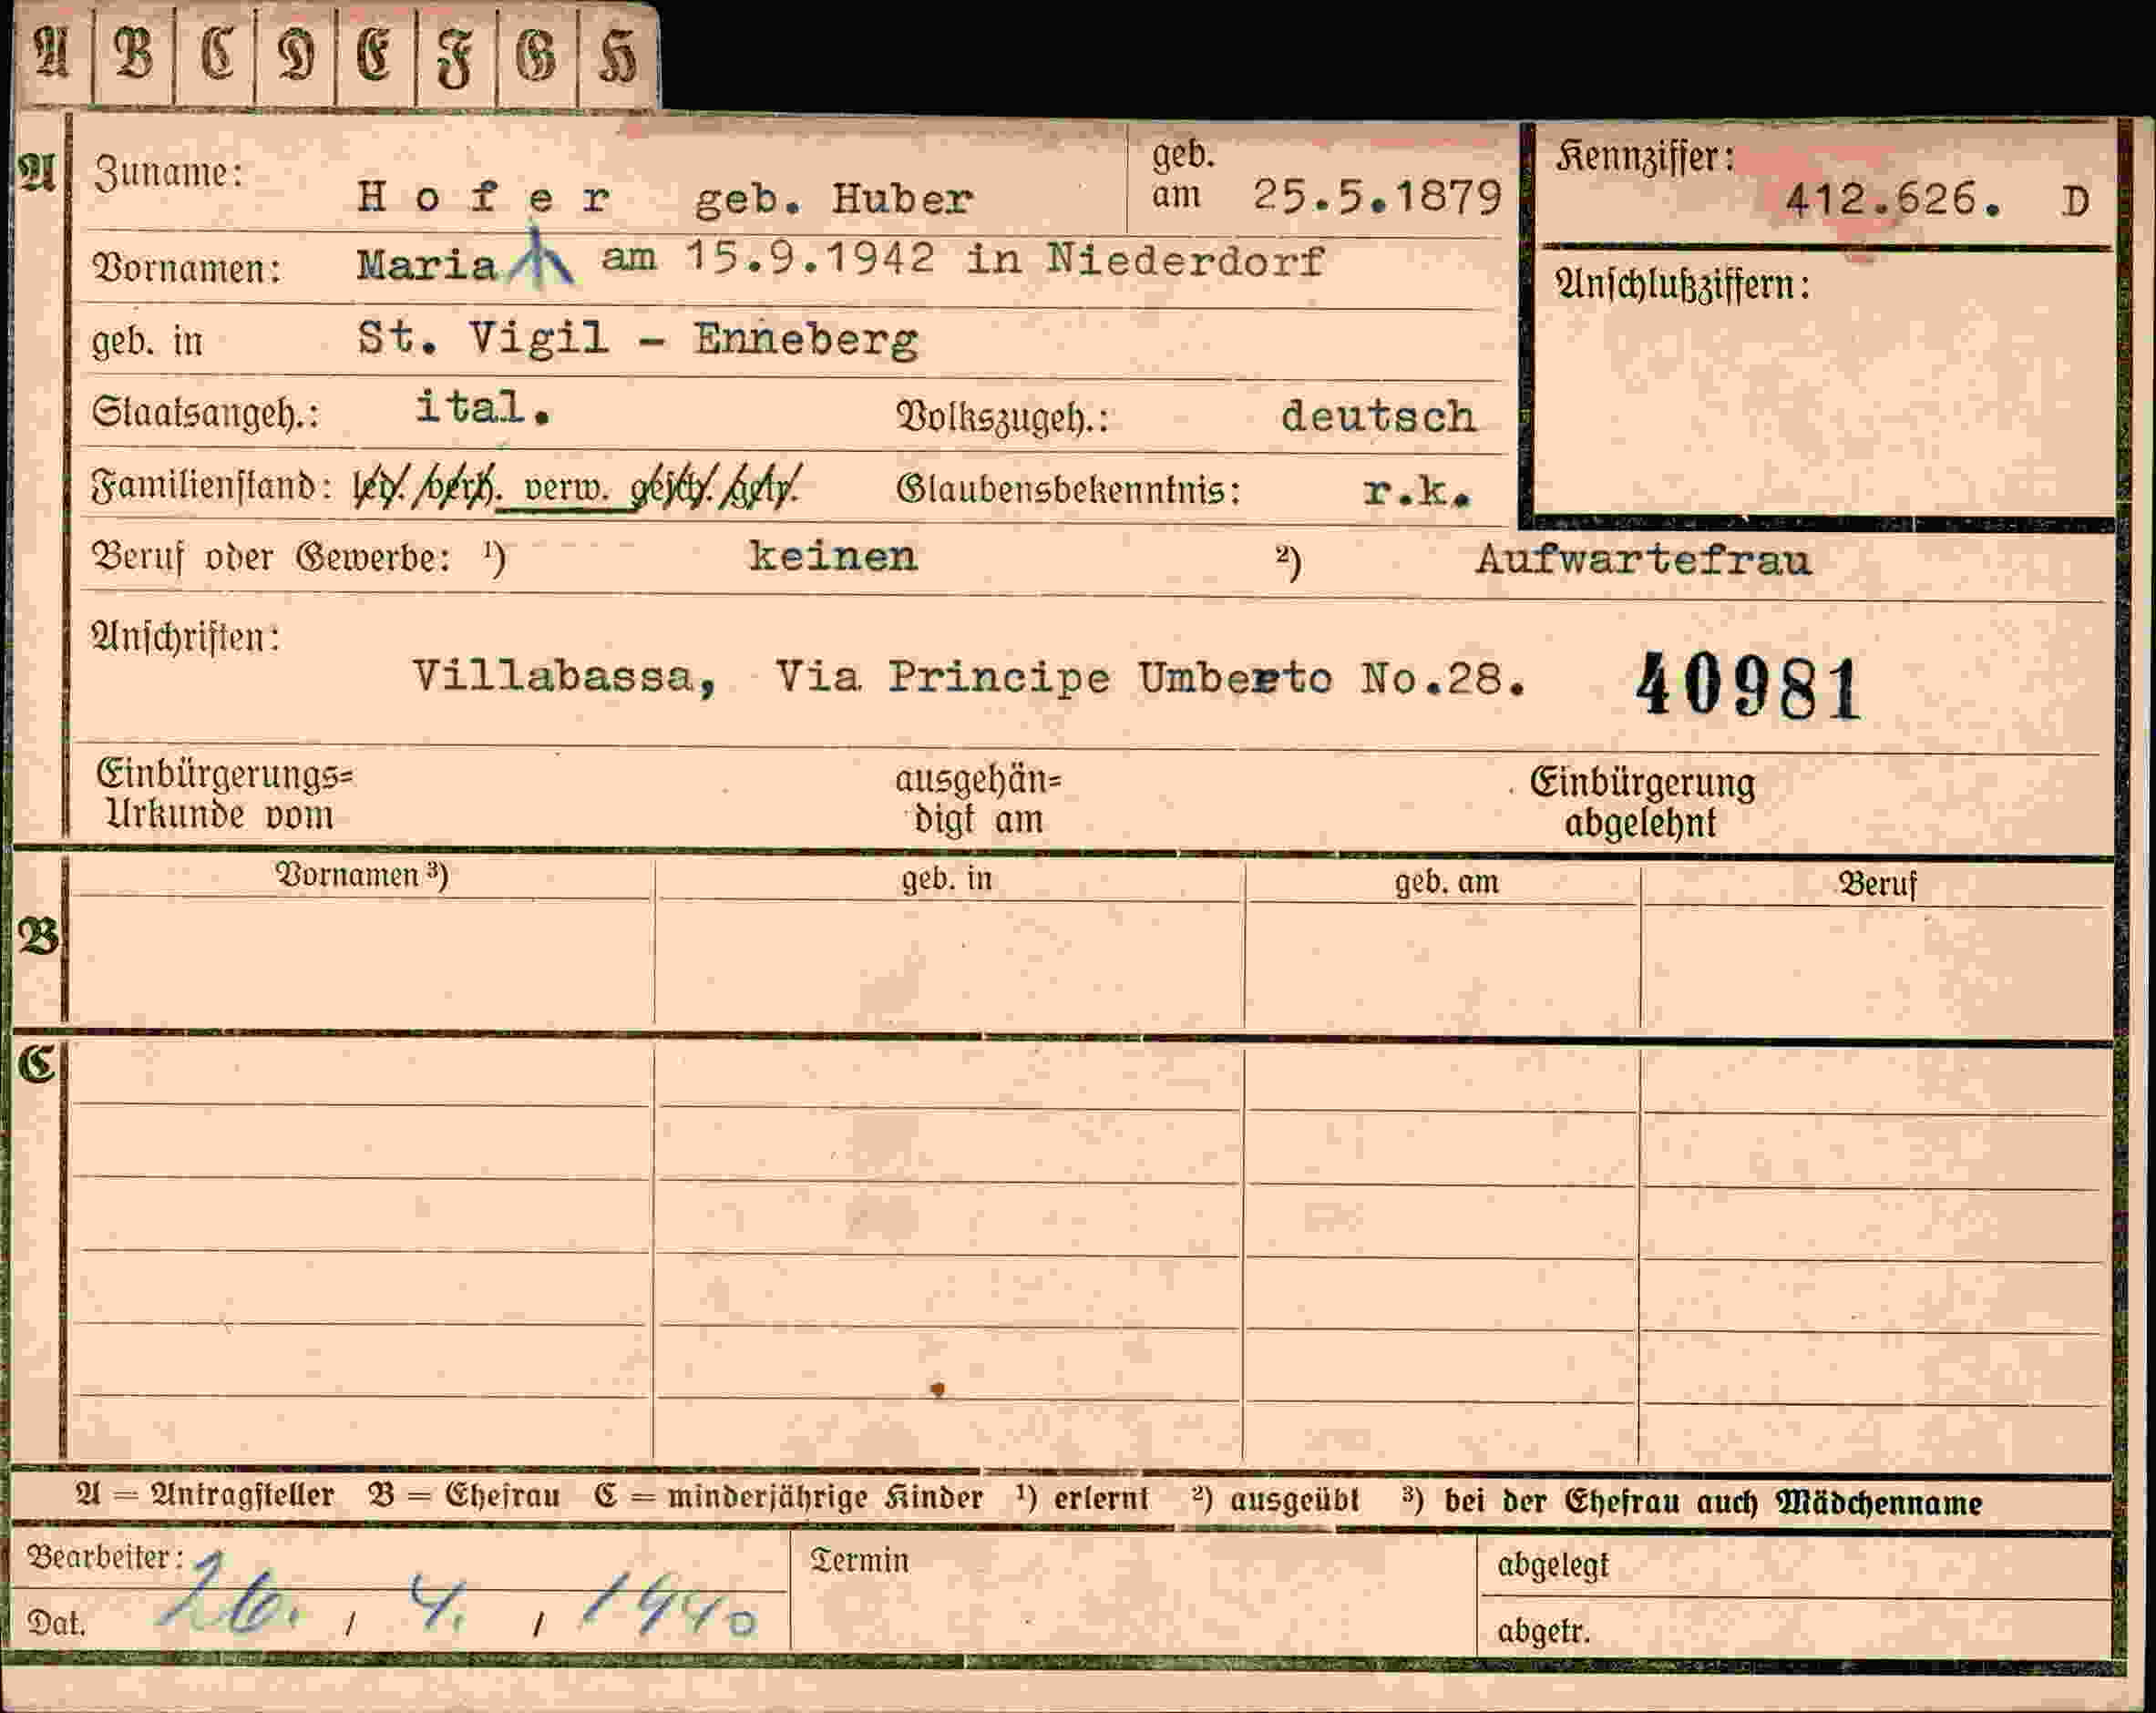 A B C D E F G H
A Zuname: Hofer geb. Huber geb. am 25.5.1879 Kennziffer: 412.626. D
Vornamen: Maria am 15.9.1942 in Niederdorf Anschlußziffern:
geb. in St. Vigil - Enneberg
Staatsangeh.: ital. Volkszugeh.: deutsch
Familienstand: led. verh. verw. gesch. getr. Glaubensbekenntnis: r.k.
Beruf oder Gewerbe: ¹) keinen ²) Aufwartefrau
Anschriften:
Villabassa, Via Principe Umberto No.28. 40981
Einbürgerungs= ausgehän= Einbürgerung
Urkunde vom digt am abgelehnt
Vornamen ³) geb. in geb. am Beruf
B
C
A = Antragsteller B = Ehefrau C = minderjährige Kinder ¹) erlernt ²) ausgeübt ³) bei der Ehefrau auch Mädchenname
Bearbeiter: Termin abgelegt
Dat. 26. / 4. / 1940 abgetr.